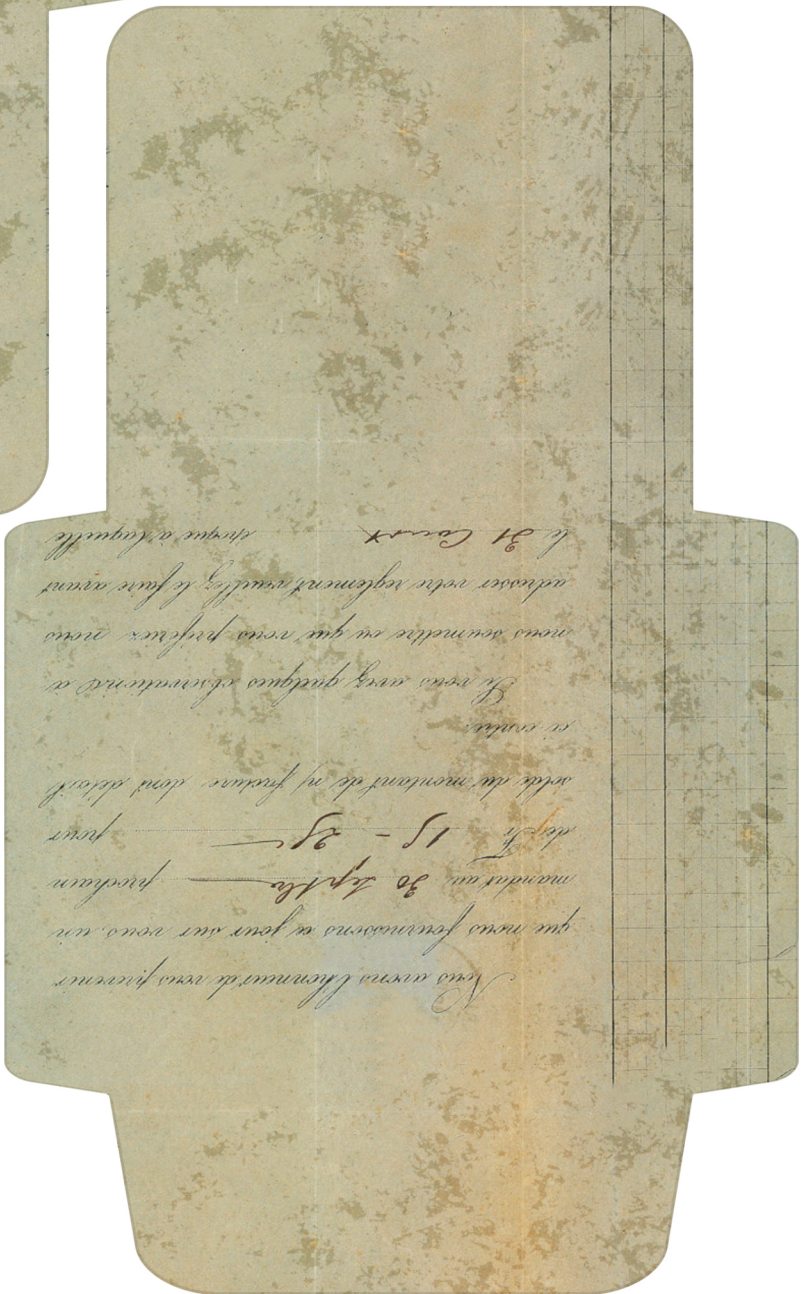 Nous avons l'honneur de vous prévenir
que nous fournissons ce jour sur vous, un
mandat au 30 Septbre prochain
de Fr 15 - 25 pour
solde du montant de n/ facture dont détail
ci contre.
Si vous avez quelques observations à
nous soumettre ou que vous préfériez nous
adresser votre règlement, veuillez le faire avant
le 31 Court époque à laquelle